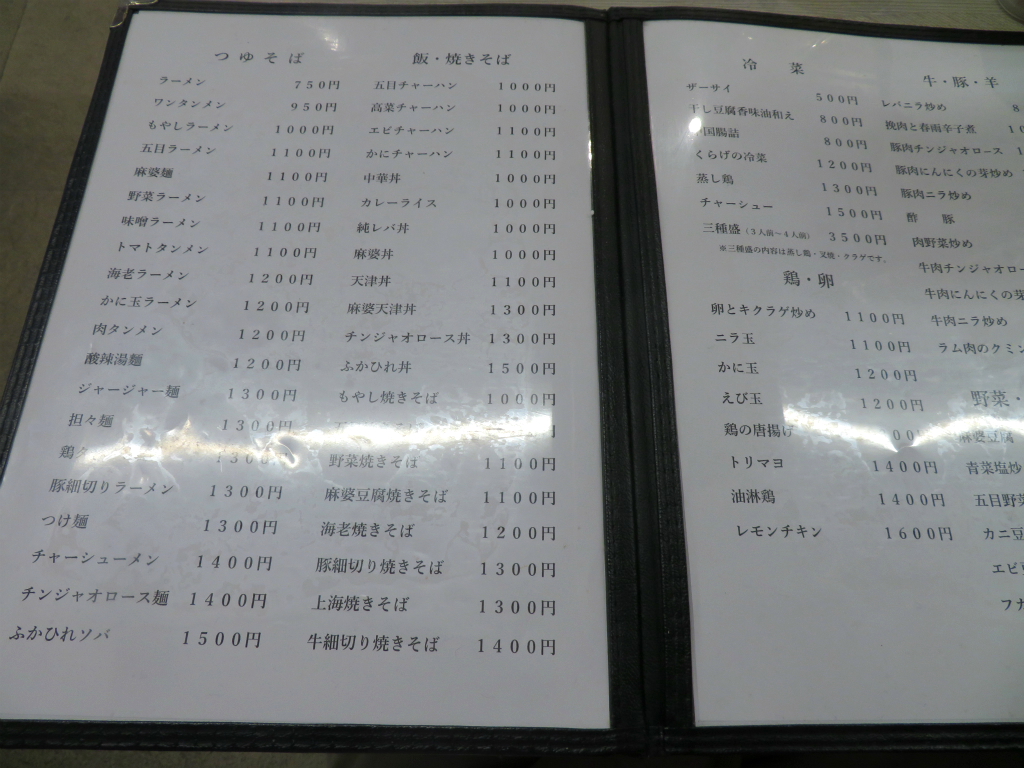 つゆそば
ラーメン 750円
ワンタンメン 950円
もやしラーメン 1000円
五目ラーメン 1100円
麻婆麺 1100円
野菜ラーメン 1100円
味噌ラーメン 1100円
トマトタンメン 1100円
海老ラーメン 1200円
かに玉ラーメン 1200円
肉タンメン 1200円
酸辣湯麺 1200円
ジャージャー麺 1300円
担々麺 1300円
鶏 1300円
豚細切りラーメン 1300円
つけ麺 1300円
チャーシューメン 1400円
チンジャオロース麺 1400円
ふかひれソバ 1500円
飯・焼きそば
五目チャーハン 1000円
高菜チャーハン 1000円
エビチャーハン 1100円
かにチャーハン 1100円
中華丼 1000円
カレーライス 1000円
純レバ丼 1000円
麻婆丼 1000円
天津丼 1100円
麻婆天津丼 1300円
チンジャオロース丼 1300円
ふかひれ丼 1500円
もやし焼きそば 1000円
野菜焼きそば 1100円
麻婆豆腐焼きそば 1100円
海老焼きそば 1200円
豚細切り焼きそば 1300円
上海焼きそば 1300円
牛細切り焼きそば 1400円
冷菜
ザーサイ 500円
干し豆腐香味油和え 800円
中国腸詰 800円
くらげの冷菜 1200円
蒸し鶏 1300円
チャーシュー 1500円
三種盛(3人前~4人前) 3500円
※三種盛の内容は蒸し鶏・叉焼・クラゲです。
鶏・卵
卵とキクラゲ炒め 1100円
ニラ玉 1100円
かに玉 1200円
えび玉 1200円
鶏の唐揚げ 00円
トリマヨ 1400円
油淋鶏 1400円
レモンチキン 1600円
牛・豚・羊
レバニラ炒め 8
挽肉と春雨辛子煮 10
豚肉チンジャオロース 1
豚肉にんにくの芽炒め
豚肉ニラ炒め
酢豚
肉野菜炒め
牛肉チンジャオロー
牛肉にんにくの芽
牛肉ニラ炒め
ラム肉のクミン
野菜・
麻婆豆腐
青菜塩炒
五目野菜
カニ豆
エビ
フナ